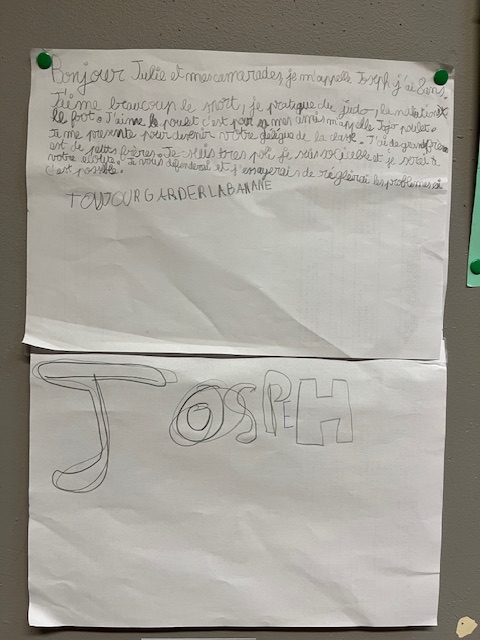 Bonjour Julie et mes camarades, je m'appelle Joseph j'ai 8 ans.
J'aime beaucoup le sport, je pratique du judo, le natation
le foot. J'aime le poulet c'est pour ça mes amis m'appelle Jojo poulet.
Je me presente pour devenir votre délégue de la classe. J'ai de grand frère
est de petits frères. Je suis tres poli je suis sociable et je serai à
votre écoute. Je vous défenderai et j'essayerais de régler les problemes si
c'est possible.
TOUJOUR GARDER LA BANANE
JOSPEH